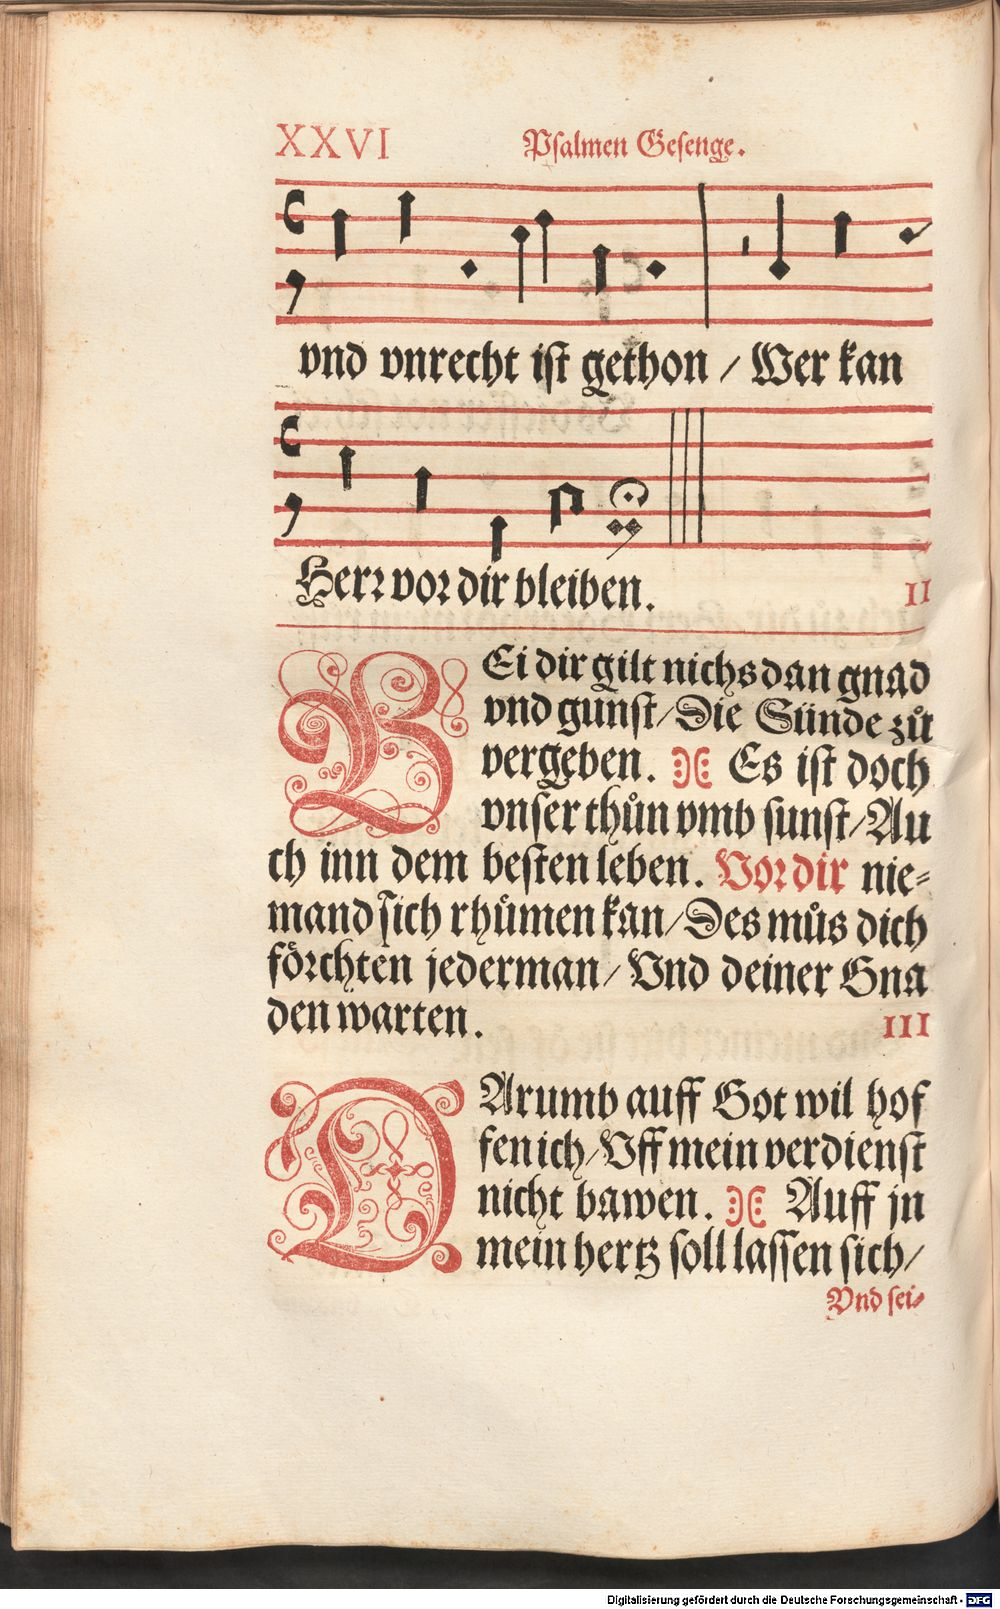 XXVI Psalmen Gesenge.
vnd vnrecht ist gethon / Wer kan
Herr vor dir bleiben. II
BEi dir gilt nichs dan gnad
vnd gunst/Die Sünde zů
vergeben. Es ist doch
vnser thůn vmb sunst/Au
ch inn dem besten leben. Vor dir nie⸗
mand sich rhůmen kan/Des můs dich
förchten jederman/Vnd deiner Gna
den warten. III
DArumb auff Got wil hof
fen ich/Vff mein verdienst
nicht bawen. Auff jn
mein hertz soll lassen sich/
Vnd sei⸗
Digitalisierung gefördert durch die Deutsche Forschungsgemeinschaft - DFG